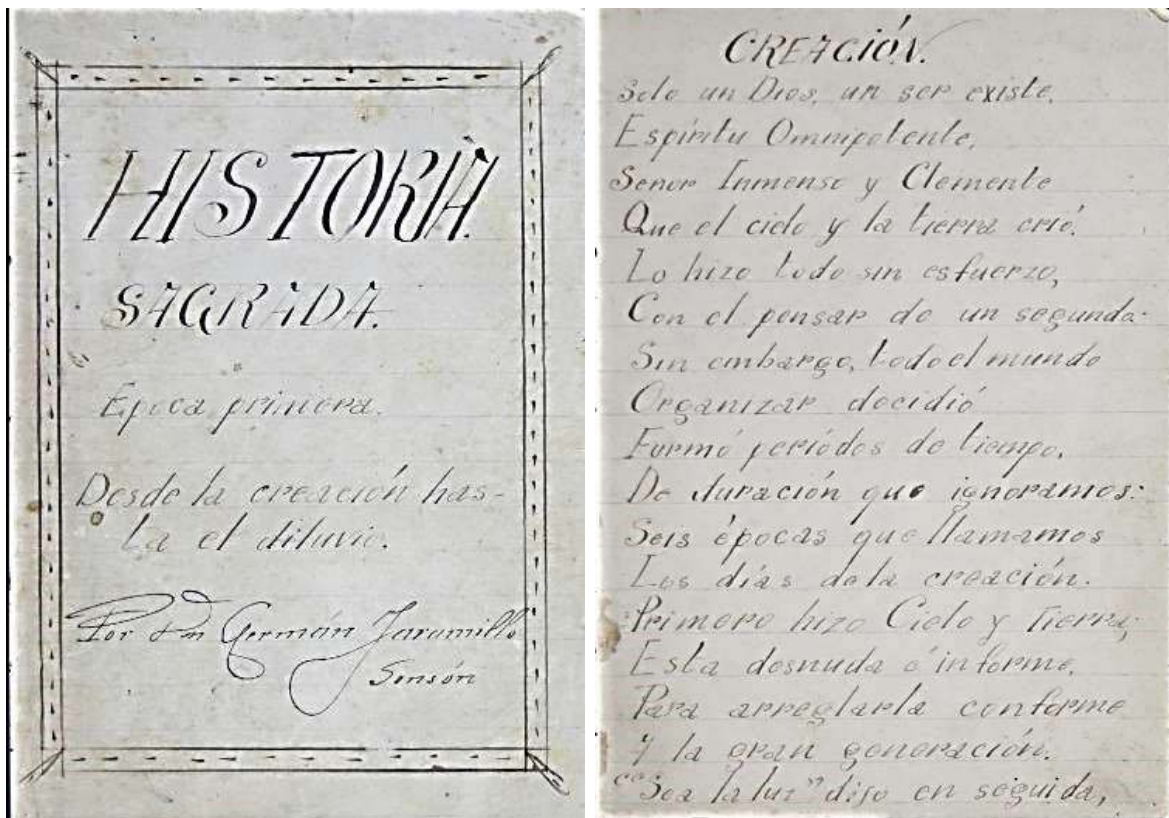 HISTORIA
SAGRADA.
Epoca primera.
Desde la creación has-
ta el diluvio.
Por Dn Germán Jaramillo
Sonsón
CREACIÓN.
Solo un Dios, un ser existe,
Espíritu Omnipotente,
Senor Inmenso y Clemente
Que el cielo y la tierra crió.
Lo hizo todo sin esfuerzo,
Con el pensar de un segundo:
Sin embargo, todo el mundo
Organizar decidió
Formó períodos de tiempo,
De duración que ignoramos:
Seis épocas que llamamos
Los días de la creación.
Primero hizo Cielo y Tierra;
Esta desnuda é informe,
Para arreglarla conforme
A la gran generación.
"Sea la luz" dijo en seguida,